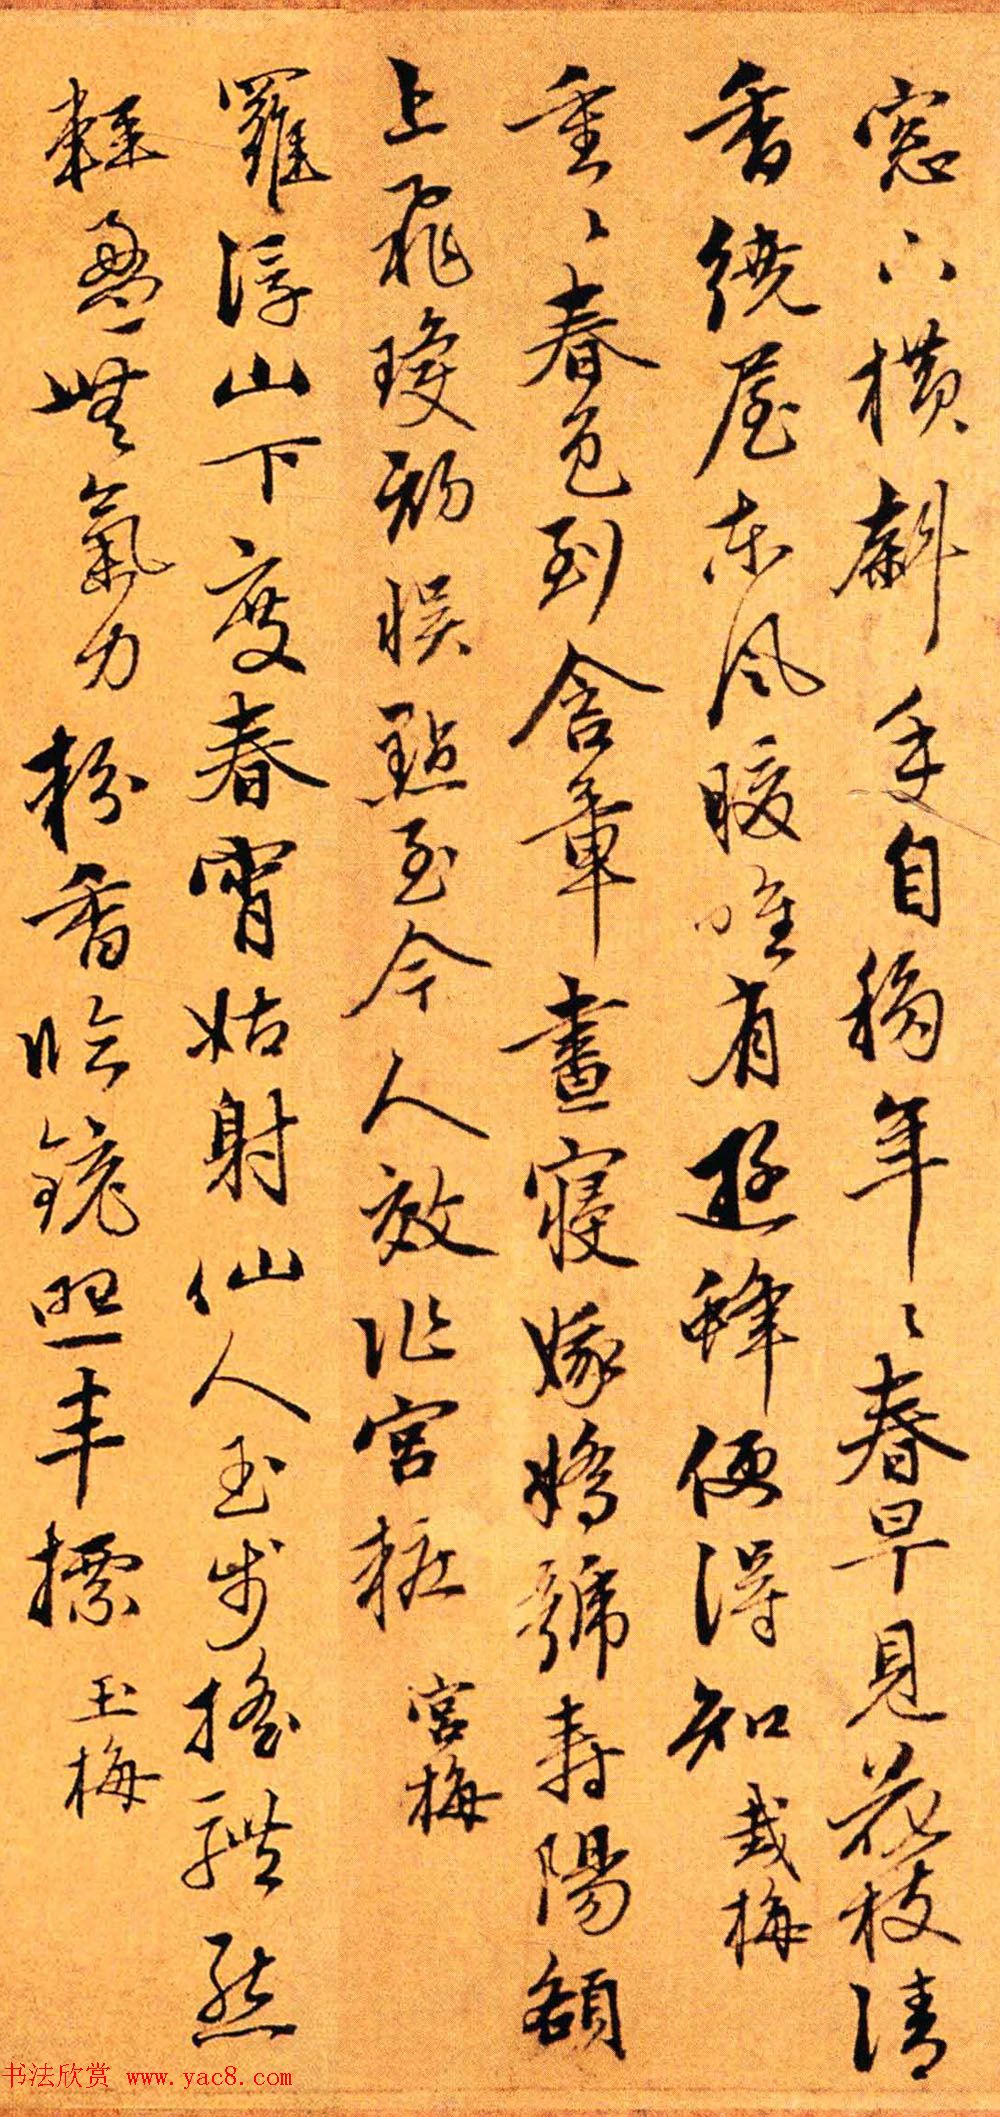 窓下横斜手自移年〻春早見花枝清
香繞屋東風暖唯有遊蜂便得知 栽梅
重〻春色到含章晝寢嫁嬌號壽陽額
上飛瓊初悮點至今人效作宮粧 宮梅
羅浮山下度春宵姑射仙人玉步搖體態
輕盈無氣力粉香臨鏡照丰摽 玉梅
书法欣赏 www.yac8.com